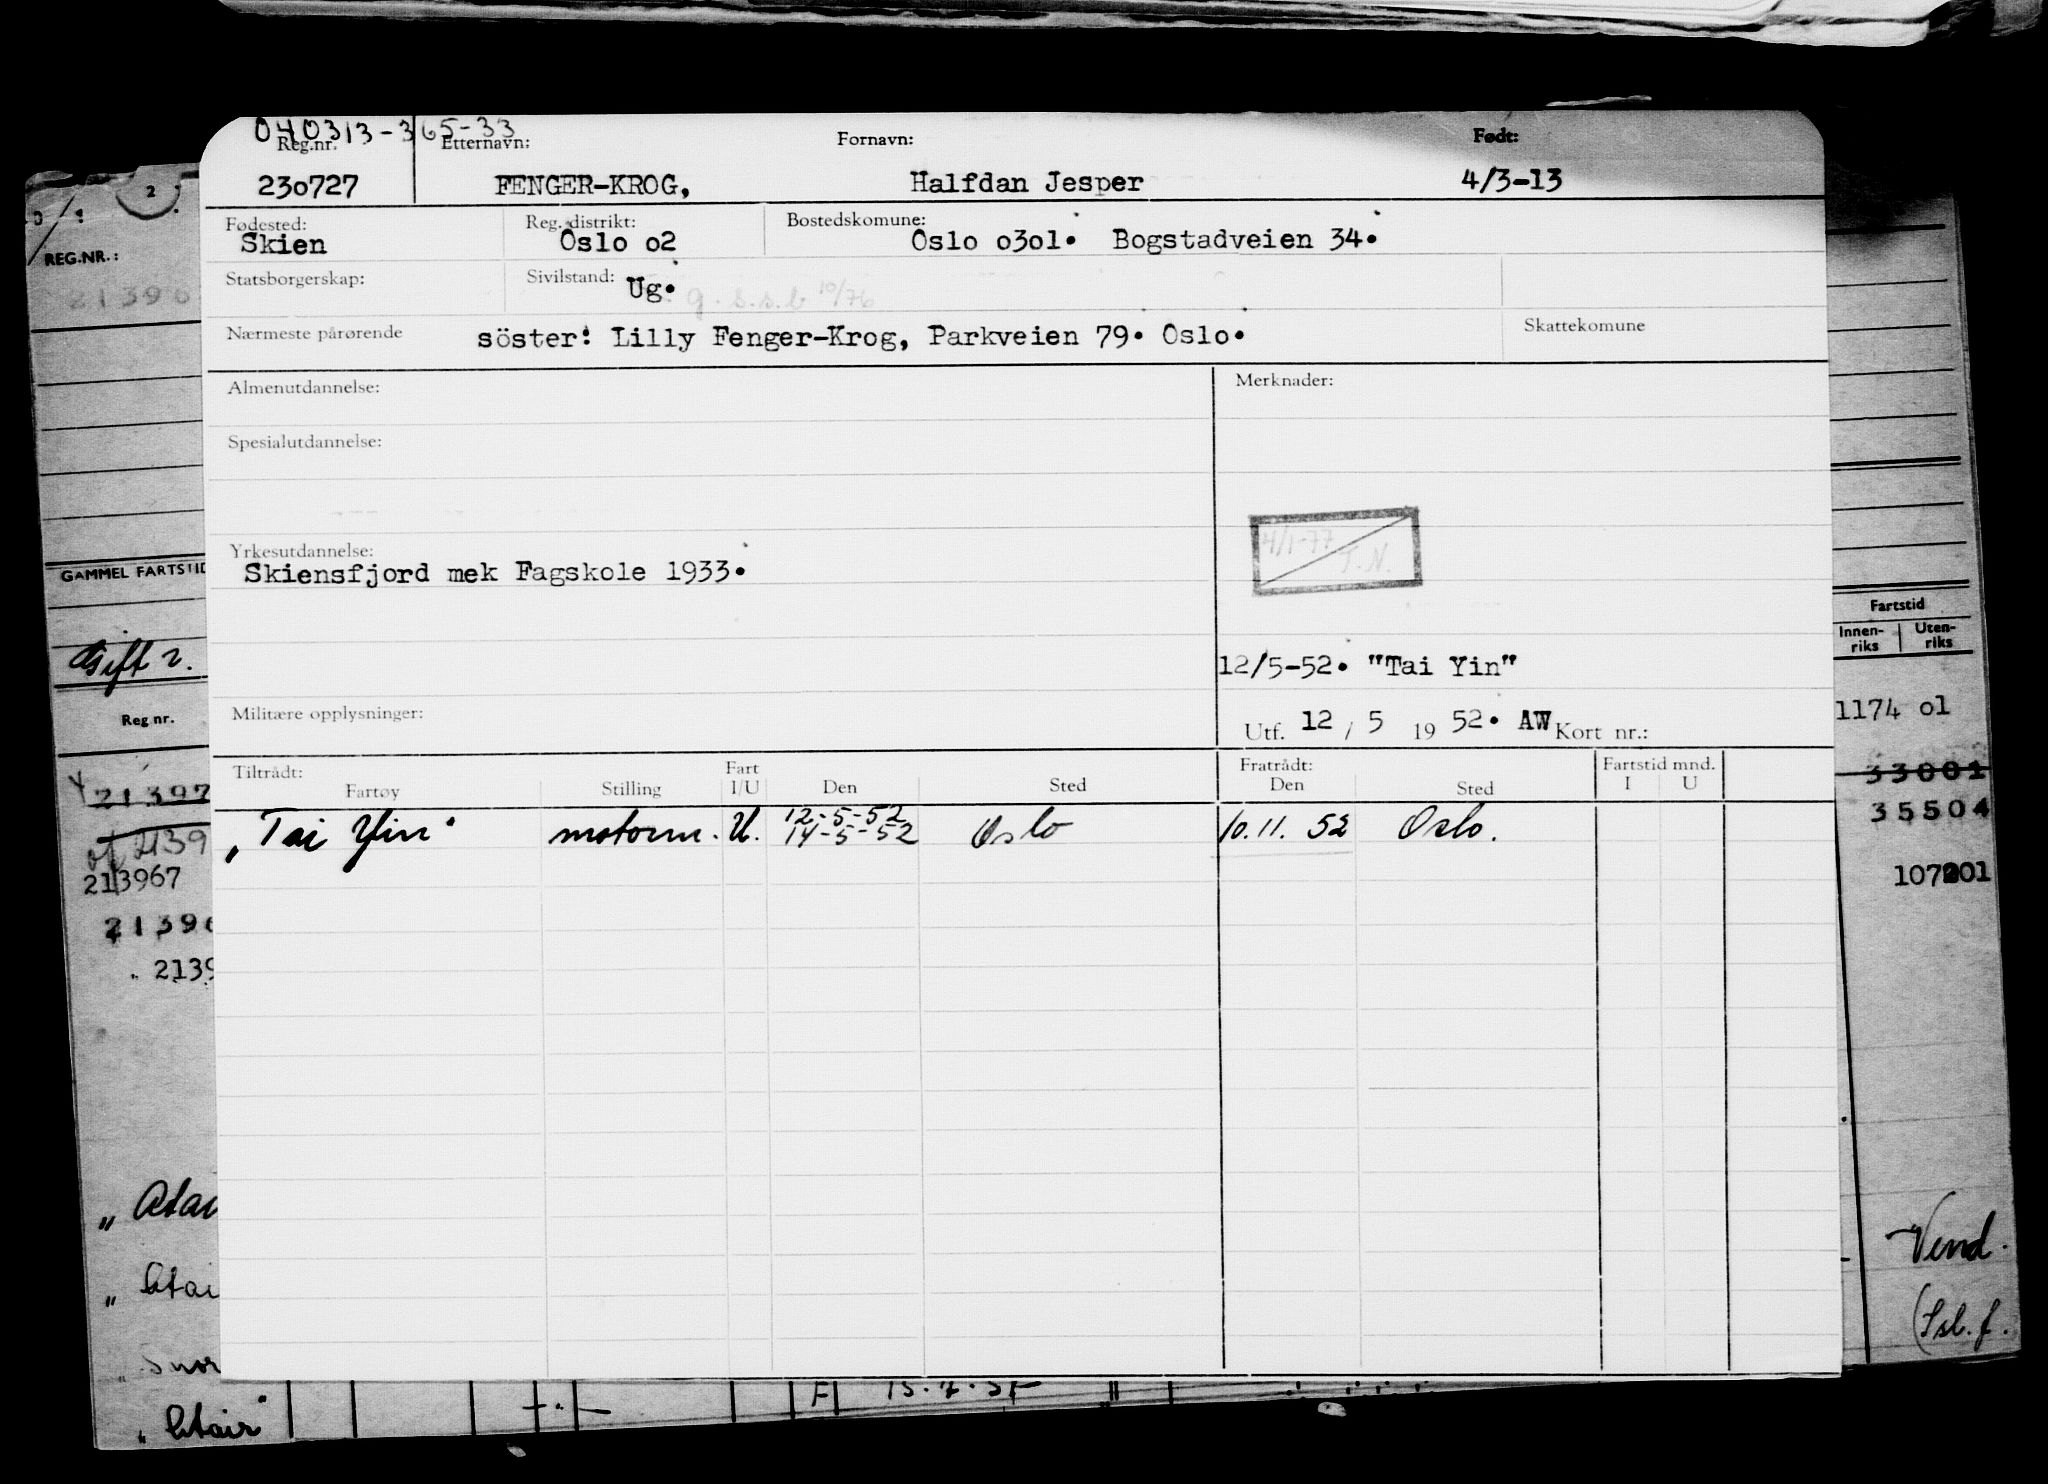 040313-365-33
Reg.nr. Etternavn: Fornavn: Født:
230727 FENGER-KROG, Halfdan Jesper 4/3-13
Fødested: Reg. distrikt: Bostedskomune:
Skien Oslo o2 Oslo o3o1. Bogstadveien 34.
Statsborgerskap: Sivilstand: Ug. g. s.s.b 10/76
Nærmeste pårørende söster: Lilly Fenger-Krog, Parkveien 79. Oslo. Skattekomune
Almenutdannelse: Merknader:
Spesialutdannelse:
4/1-77 T.N.
Yrkesutdannelse:
Skiensfjord mek Fagskole 1933.
12/5-52. "Tai Yin"
Militære opplysninger: Utf. 12 / 5 19 52. AW Kort nr.:
Tiltrådt: Fart Fratrådt: Fartstid mnd.
Fartøy Stilling I/U Den Sted Den Sted I U
12-5-52
„Tai Yin" motorm. U. 14-5-52 Oslo 10.11. 52 Oslo.
2
REG.NR.:
21396
GAMMEL FARTSTID
Gift 2.
Reg nr.
21397
of 2139
213967
21396
2139
„Atai
„Atai
„Snor
„Atair"
F 15.7.57
Fartstid
Innen-riks Uten-riks
1174 o1
33001
35504
107201
Vend.
(Ssl. f.